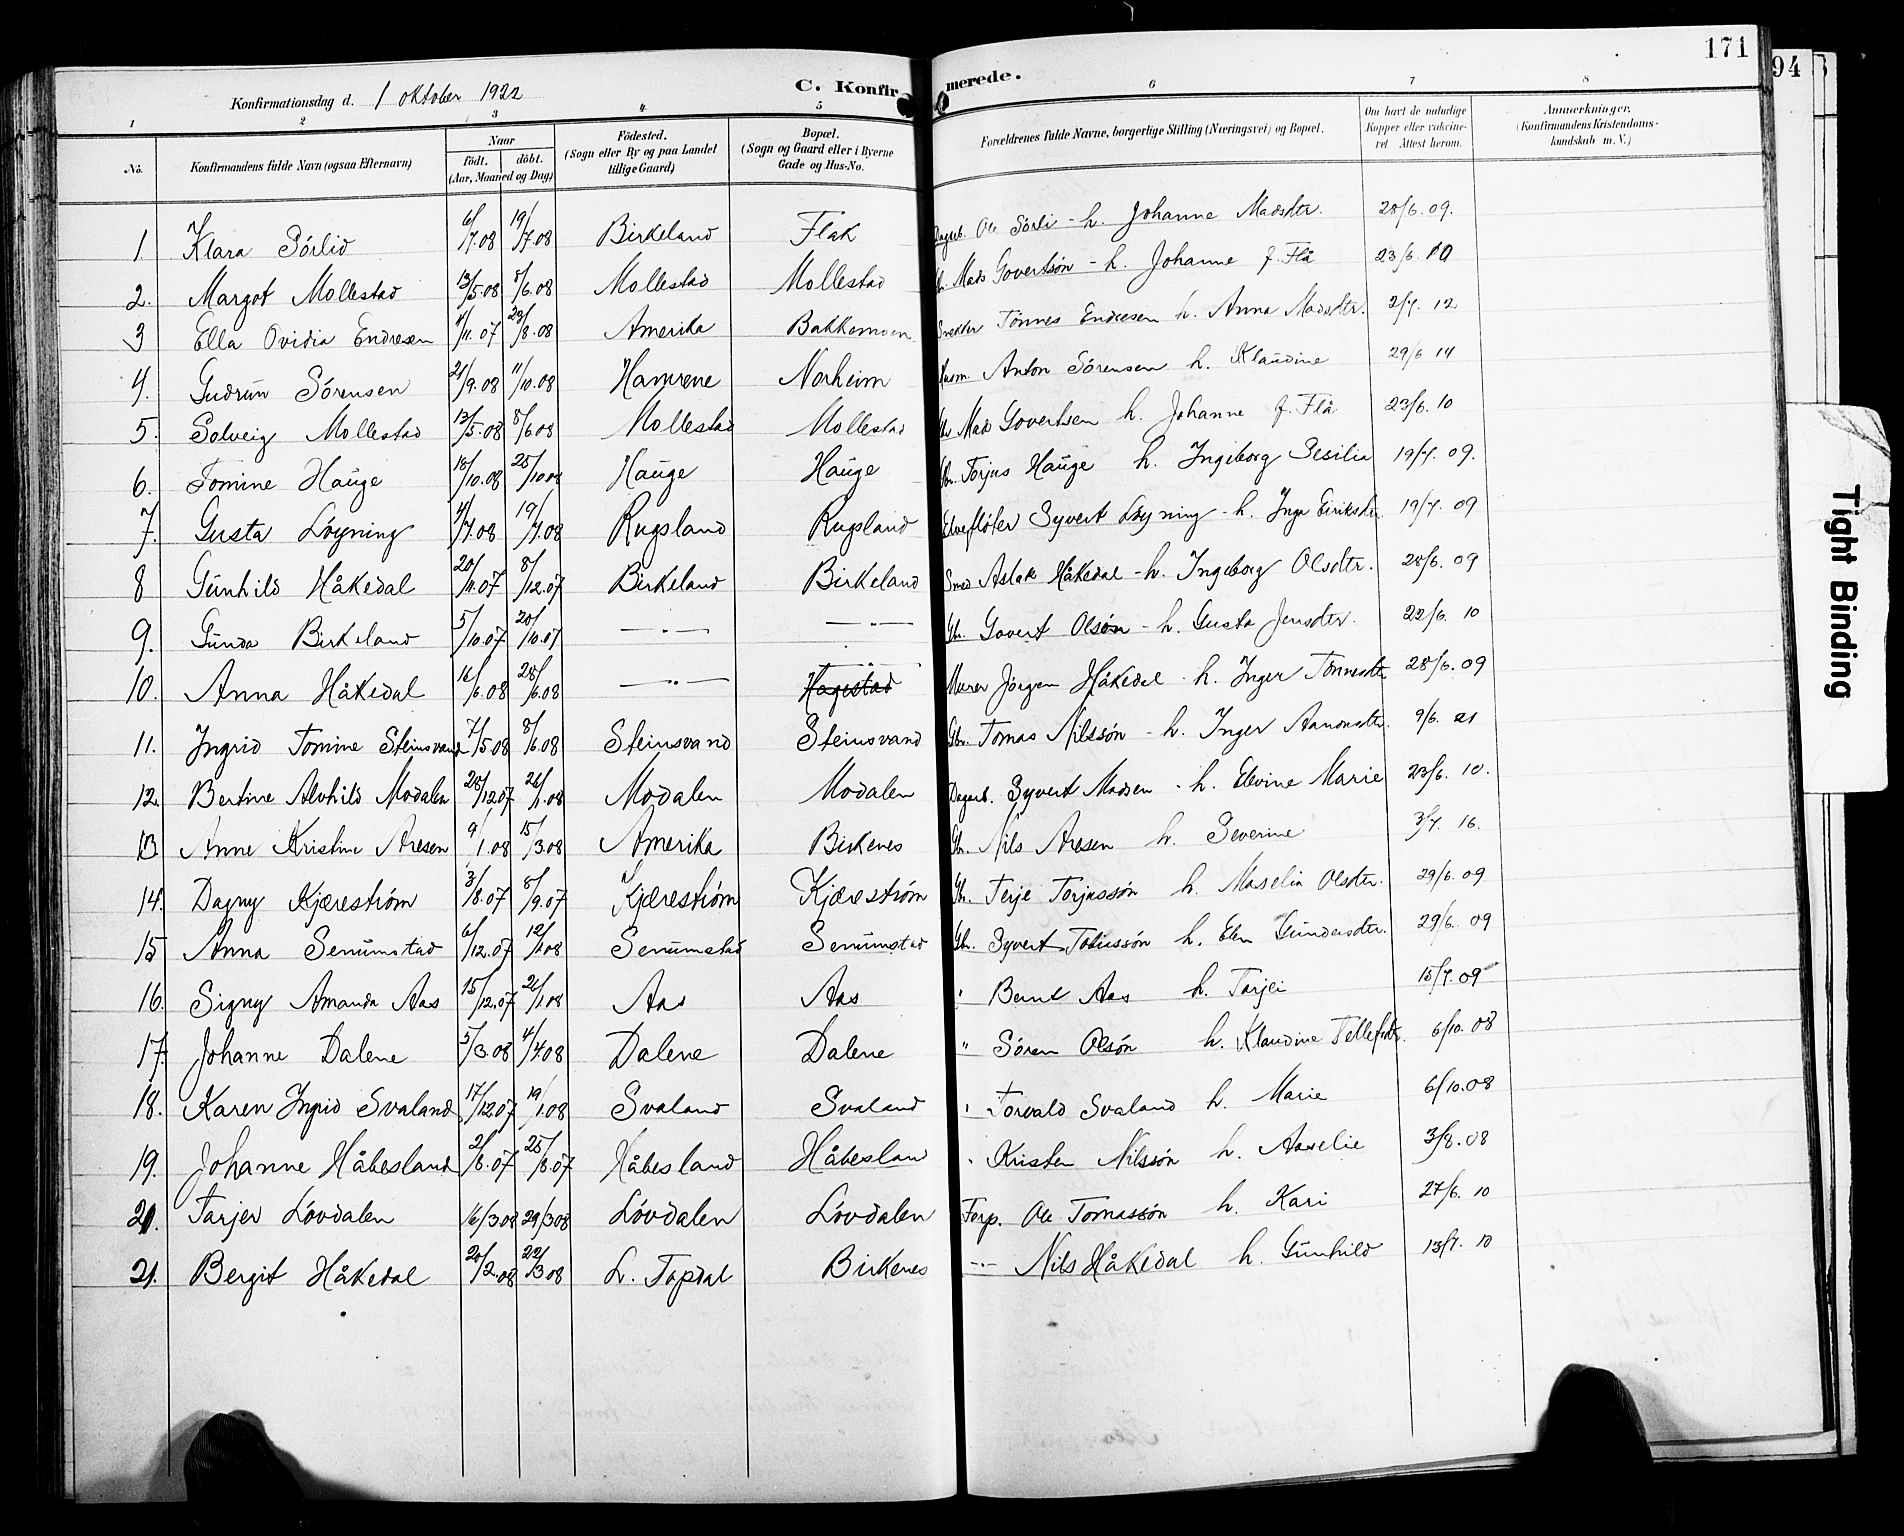 171
94
Konfirmationsdag d. 1 oktober 1922 C. Konfirmerede.
1 2 3 4 5 6 7 8
No. Konfirmandens fulde Navn (ogsaa Efternavn) Naar født. døbt. (Aar, Maaned og Dag) Fødested. (Sogn eller By og paa Landet tillige Gaard) Bopæl. (Sogn og Gaard eller i Byerne Gade og Hus-No. Forældrenes fulde Navne, borgerlige Stilling (Næringsvei) og Bopæl. Om havt de naturlige Kopper eller vakcineret Attest herom. Anmærkninger. (Konfirmandens Kristendomskundskab m. V.)
1. Klara Sörlid 6/7.08 19/7.08 Birkeland Flak Dagarb. Ole Sörli - h. Johanne Madsdtr. 28/6.09.
2. Margot Mollestad 13/5.08 8/6.08 Mollestad Mollestad Gbr. Mads Govertsön - h. Johanne f. Flå 23/6.10
3 Ella Ovidia Endresen 4/11.07 23/8.08 Amerika Bakkemoen Snekker Tönnes Endresen h. Anna Madsdtr. 2/7. 12
4. Gudrun Sörensen 21/9.08 11/10.08 Hamrene Norheim Husm. Anton Sörensen h. Klaudine 29/6 14
5. Solveig Mollestad 13/5.08 8/6.08 Mollestad Mollestad Gbr Mads Govertsen h. Johanne f. Flå 23/6. 10
6. Tomine Hauge 18/10.08 25/10.08 Hauge Hauge Gbr. Torjus Hauge h. Ingeborg Sesilie 19/7. 09.
7. Gusta Löyning 4/7.08 19/7.08 Rugsland Rugsland Elvefløter Syvert Löyning - h. Inga Eriksdtr. 19/7. 09
8 Gunhild Håkedal 20/11.07 8/12.07 Birkeland Birkeland Smed Aslak Håkedal - h. Ingeborg Olsdtr. 28/6. 09
9. Gunda Birkeland 5/10.07 20/10.07 —"— —"— Gbr. Govert Olsön - h. Gusta Jensdtr. 22/6. 10
10. Anna Håkedal 16/6.08 28/6.08 —"— Hagestad Murer Jörgen Håkedal - h. Inger Tönnesdtr 28/6. 09
11. Ingrid Tomine Steinsvand 7/5.08 8/6.08 Steinsvand Steinsvand Gbr. Tomas Nilssön - h. Inger Aanonsdtr. 9/6. 21
12. Bertine Alvhild Modalen 28/12.07 26/1.08 Modalen Modalen Dagarb. Syvert Madsen - h. Elevine Marie 23/6. 10.
13 Anne Kristine Aresen 9/1.08 15/3.08 Amerika Birkenes Gbr. Nils Aresen h. Severine 3/7. 16.
14. Dagny Kjærestrøm 3/8.07 8/9.07 Kjærestrøm Kjærestrøm Gbr. Terje Torjussön h. Maselia Olsdtr. 29/6. 09
15 Anna Senumstad 6/12.07 12/1.08 Senumstad Senumstad Gbr. Syvert Tobiassön h. Elen Gundersdtr. 29/6. 09
16. Signy Amanda Aas 15/12.07 26/1.08 Aas Aas " Bernt Aas h. Tarjei 15/7.09
17. Johanne Dalene 5/3.08 4/4.08 Dalene Dalene " Sören Olsön h. Klaudine Tellefsdtr. 6/10.08
18. Karen Ingrid Svaland 17/12.07 19/1.08 Svaland Svaland " Torvald Svaland h. Marie 6/10.08
19. Johanne Håbesland 2/8.07 25/8.07 Håbesland Håbeslan " Kristen Nilssön h. Aaselie 3/8.08
20. Tarjer Lövdalen 16/3.08 29/3.08 Lövdalen Lövdalen Forp. Ole Tomassön h. Kari 27/6. 10
21. Bergit Håkedal 20/2.08 22/3.08 L. Topdal Birkenes —"— Nils Håkedal h. Gunhild 13/7. 10
Tight Binding